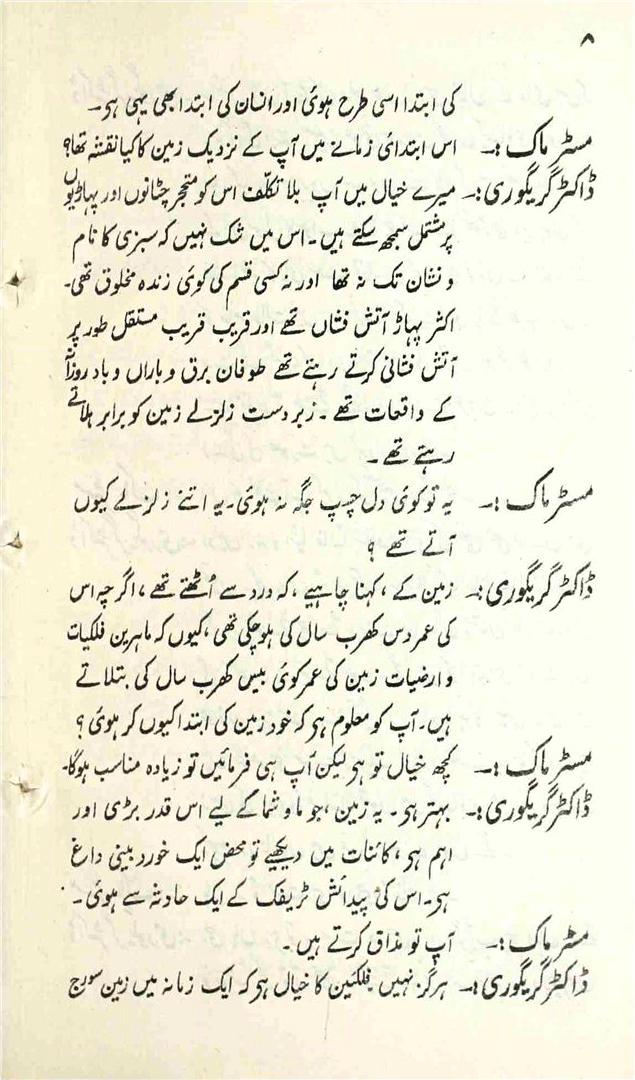 ۸
کی ابتدا اسی طرح ہوئی اور انسان کی ابتدا بھی یہی ہی۔
مسٹر ماک :۔ اس ابتدائی زمانے میں آپ کے نزدیک زمین کا کیا نقشہ تھا؟
ڈاکٹر گریگوری :۔ میرے خیال میں آپ بلا تکلّف اس کو متحجر چٹانوں اور پہاڑیوں
پر مشتمل سمجھ سکتے ہیں۔ اس میں شک نہیں کہ سبزی کا نام
و نشان تک نہ تھا اور نہ کسی قسم کی کوئی زندہ مخلوق تھی۔
اکثر پہاڑ آتش فشاں تھے اور قریب قریب مستقل طور پر
آتش فشانی کرتے رہتے تھے طوفان برق و باراں و باد روزانہ
کے واقعات تھے ۔ زبردست زلزلے زمین کو برابر ہلاتے
رہتے تھے ۔
مسٹر ماک :۔ یہ تو کوئی دل چسپ جگہ نہ ہوئی۔ یہ اتنے زلزلے کیوں
آتے تھے ؟
ڈاکٹر گریگوری :۔ زمین کے ، کہنا چاہیے ، کہ درد سے اُٹھتے تھے ، اگرچہ اس
کی عمر دس کھرب سال کی ہو چکی تھی ، کیوں کہ ماہرین فلکیات
و ارضیات زمین کی عمر کوئی بیس کھرب سال کی بتلاتے
ہیں۔ آپ کو معلوم ہی کہ خود زمین کی ابتدا کیوں کر ہوئی ؟
مسٹر ماک :۔ کچھ خیال تو ہی لیکن آپ ہی فرمائیں تو زیادہ مناسب ہوگا۔
ڈاکٹر گریگوری :۔ بہتر ہی۔ یہ زمین ، جو ما و شما کے لیے اس قدر بڑی اور
اہم ہی ، کائنات میں دیکھیے تو محض ایک خوردبینی داغ
ہی۔ اس کی پیدائش ٹریفک کے ایک حادثہ سے ہوئی ۔
مسٹر ماک :۔ آپ تو مذاق کرتے ہیں ۔
ڈاکٹر گریگوری :۔ ہرگز نہیں فلکئین کا خیال ہی کہ ایک زمانہ میں زمین سورج